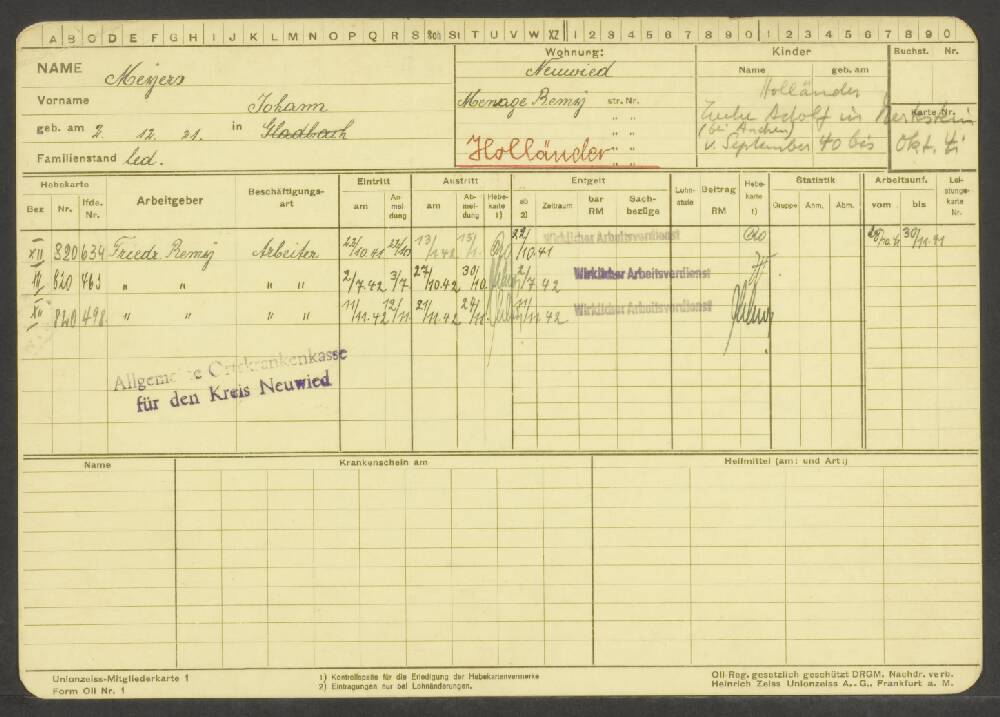 A B C D E F G H I J K L M N O P Q R S Sch St T U V W XZ 1 2 3 4 5 6 7 8 9 0 1 2 3 4 5 6 7 8 9 0
NAME Meyers
Vorname Johann
geb. am 2. 12. 21. in Gladbach
Familienstand led.
Wohnung:
Neuwied
Menage Remy str. Nr.
" "
" "
Holländer " "
Kinder
Name geb. am
Holländer
Zeche Adolf in Merkstein
(bei Aachen)
v. September 40 bis Okt. 41
Buchst. Nr.
Karte Nr.
Hebekarte Arbeitgeber Beschäftigungsart Eintritt Austritt Entgelt Lohnstufe Beitrag RM Hebekarte 1) Statistik Arbeitsunf. Leistungskarte Nr.
Bez Nr. lfde. Nr. am Anmeldung am Abmeldung Hebekarte 1) ab 2) Zeitraum bar RM Sachbezüge Gruppe Ahm. Abm. vom bis
XII 820 634 Friedr. Remy Arbeiter 22/10.41 22/10 13/1.42 15/1. 22/10.41 Wirklicher Arbeitsverdienst 30/11.41
IV 820 463 " " " " 2/7.42 3/7. 27/10.42 30/10. 2/7.42 Wirklicher Arbeitsverdienst
XII 820 498. " " " " 11/11.42 12/11. 21/11.42 24/11. 11/11.42 Wirklicher Arbeitsverdienst
Allgemeine Ortskrankenkasse
für den Kreis Neuwied
Name Krankenschein am Heilmittel (am: und Art:)
Unionzeiss-Mitgliederkarte 1
Form OII Nr. 1
1) Kontrollspalte für die Erledigung der Hebekartenvermerke
2) Eintragungen nur bei Lohnänderungen.
OII Reg. gesetzlich geschützt DRGM. Nachdr. verb.
Heinrich Zeiss Unionzeiss A.. G., Frankfurt a. M.